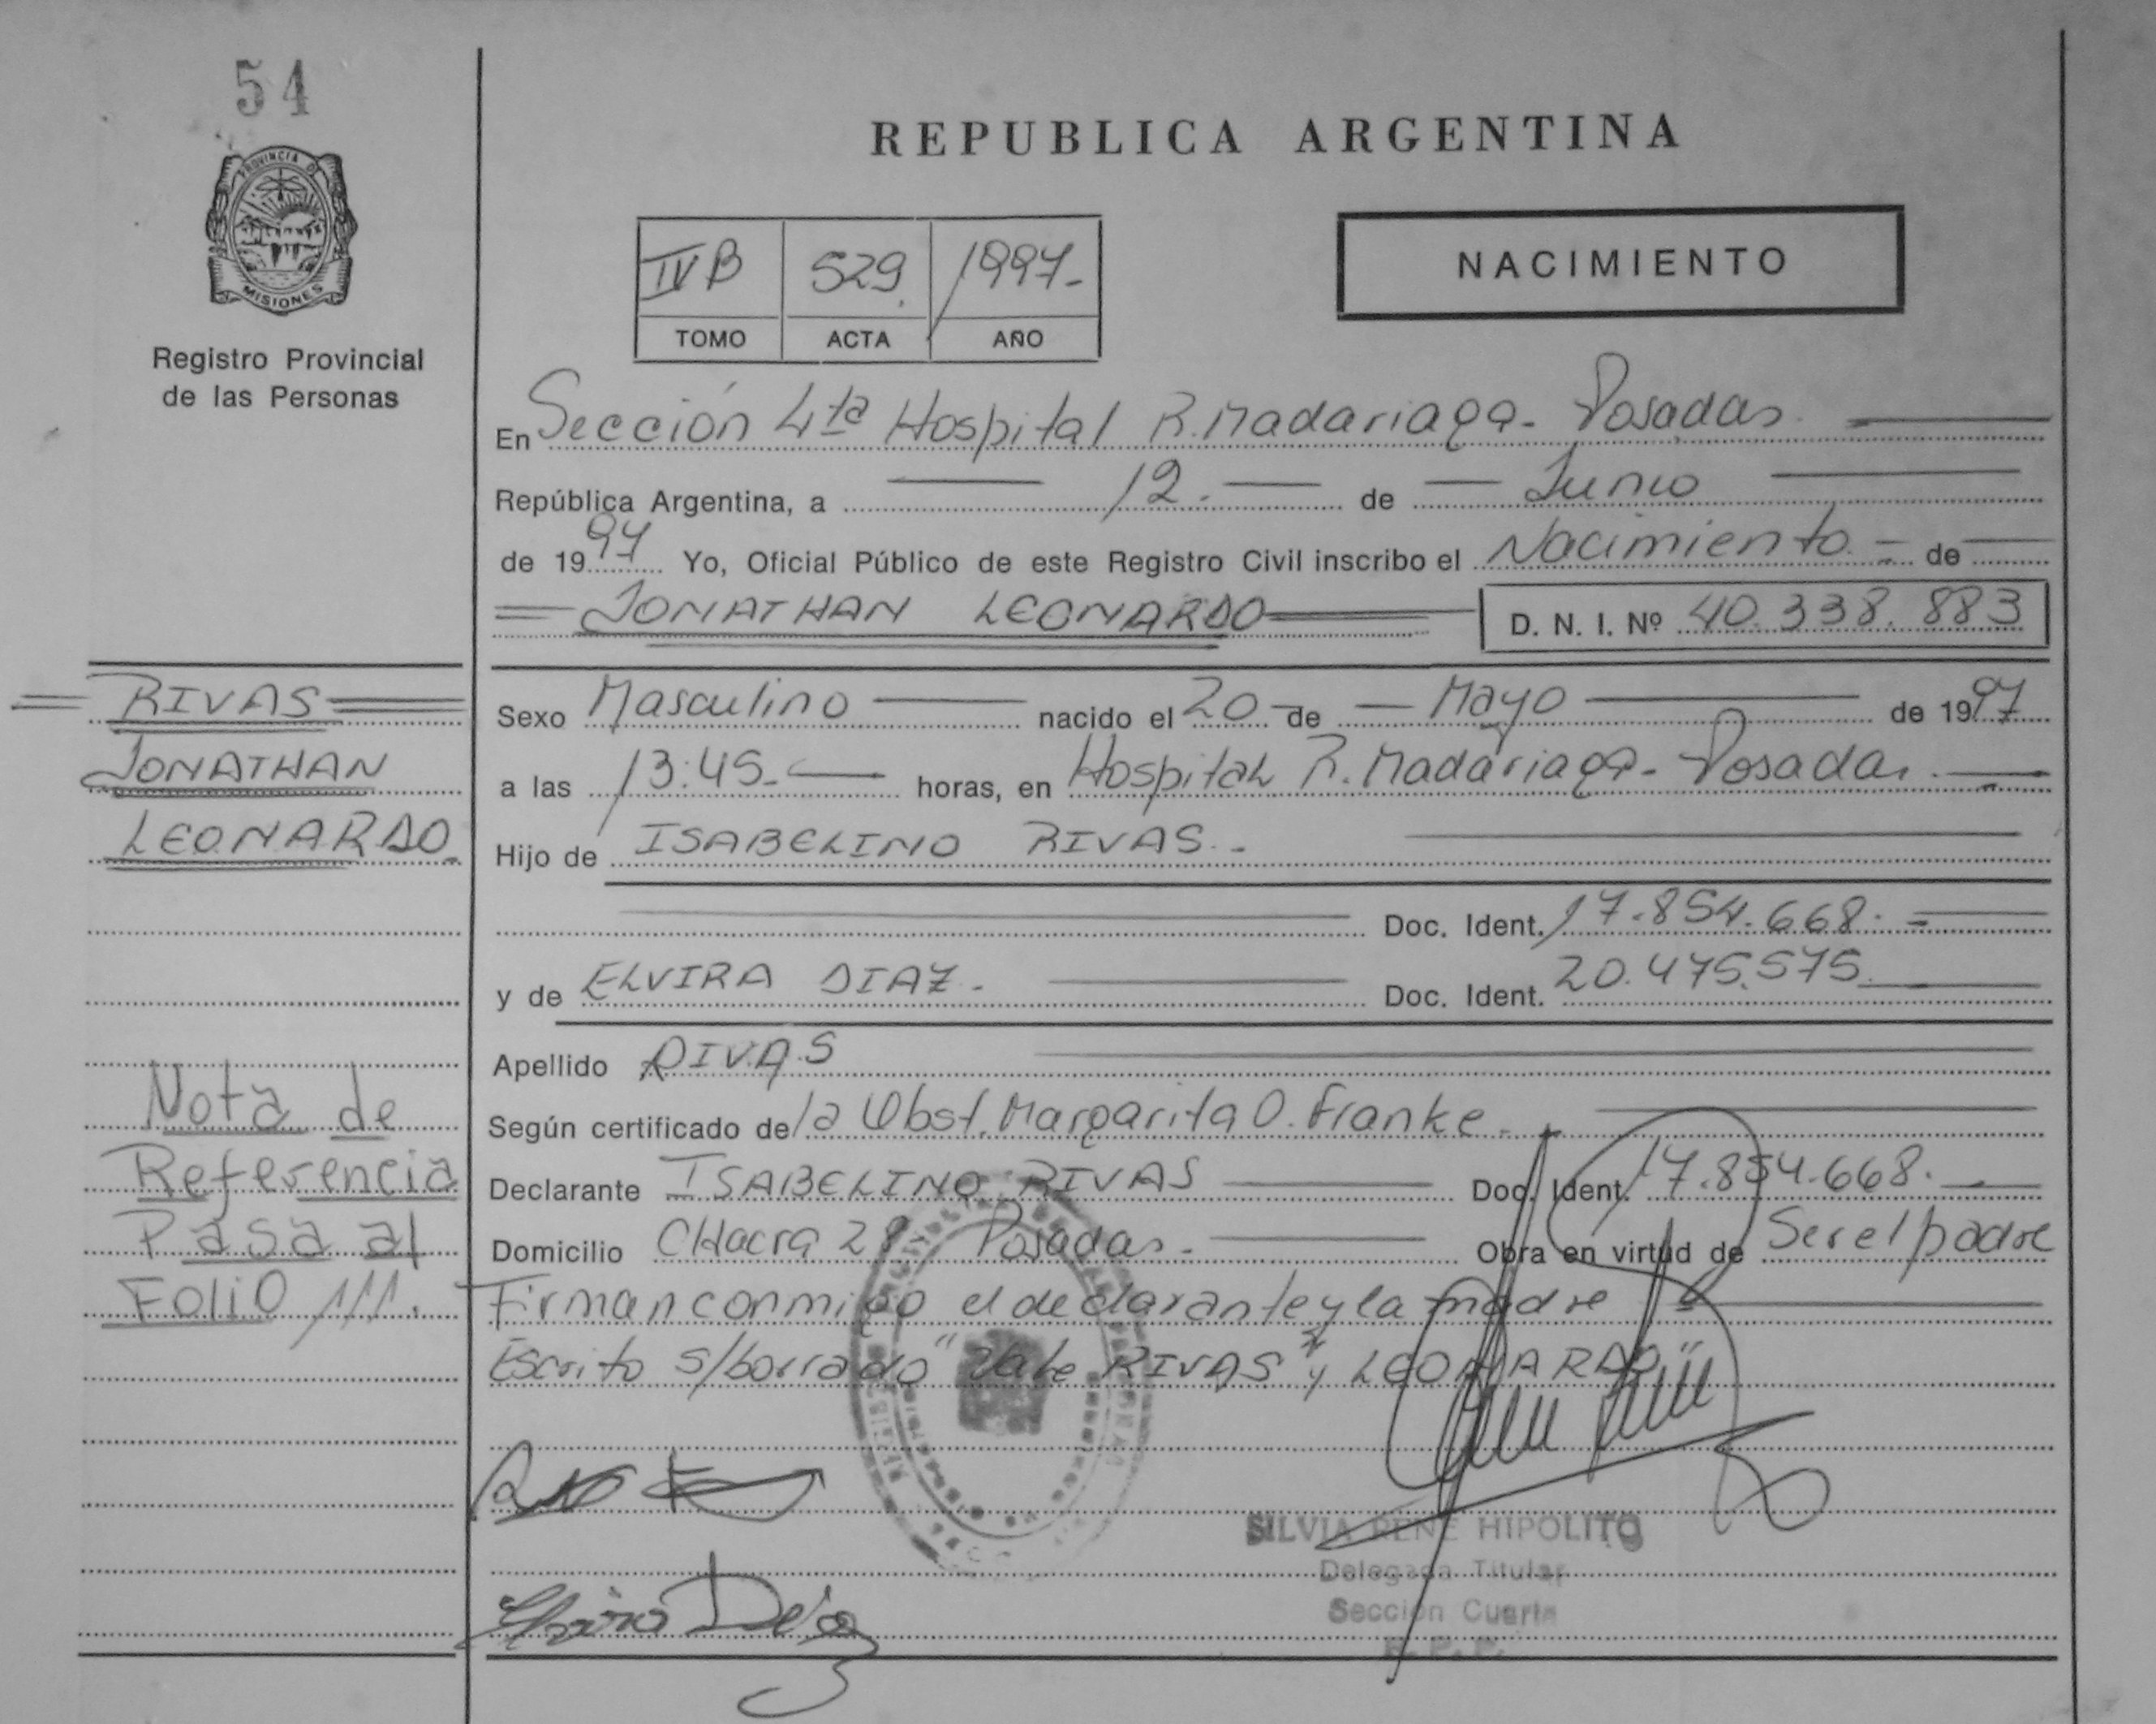 54
PROVINCIA DE
MISIONES
Registro Provincial
de las Personas
REPUBLICA ARGENTINA
IV B 529 1997-
TOMO ACTA AÑO
NACIMIENTO
En Sección 4ta Hospital R. Madariaga - Posadas.
República Argentina, a 12. de Junio
de 1997 Yo, Oficial Público de este Registro Civil inscribo el Nacimiento - de
JONATHAN LEONARDO D. N. I. Nº 40.338.883
RIVAS
JONATHAN
LEONARDO
Sexo Masculino nacido el 20 de Mayo de 1997
a las 13:45.- horas, en Hospital R. Madariaga - Posadas.
Hijo de ISABELINO RIVAS.-
Doc. Ident. 17.854.668.-
y de ELVIRA DIAZ.- Doc. Ident. 20.475.575
Apellido RIVAS
Según certificado de la Obst. Margarita O. Franke.
Declarante ISABELINO RIVAS Doc. Ident. 17.854.668.
Domicilio CHacra 28 Posadas.- Obra en virtud de Ser el padre
Firman conmigo el declarante y la madre
Escrito s/borrado "Vale RIVAS" y LEONARDO"
Nota de
Referencia
Pasa al
Folio 111.
SILVIA RENE HIPOLITO
Delegada Titular
Sección Cuarta
R. P. P.
Elvira Diaz